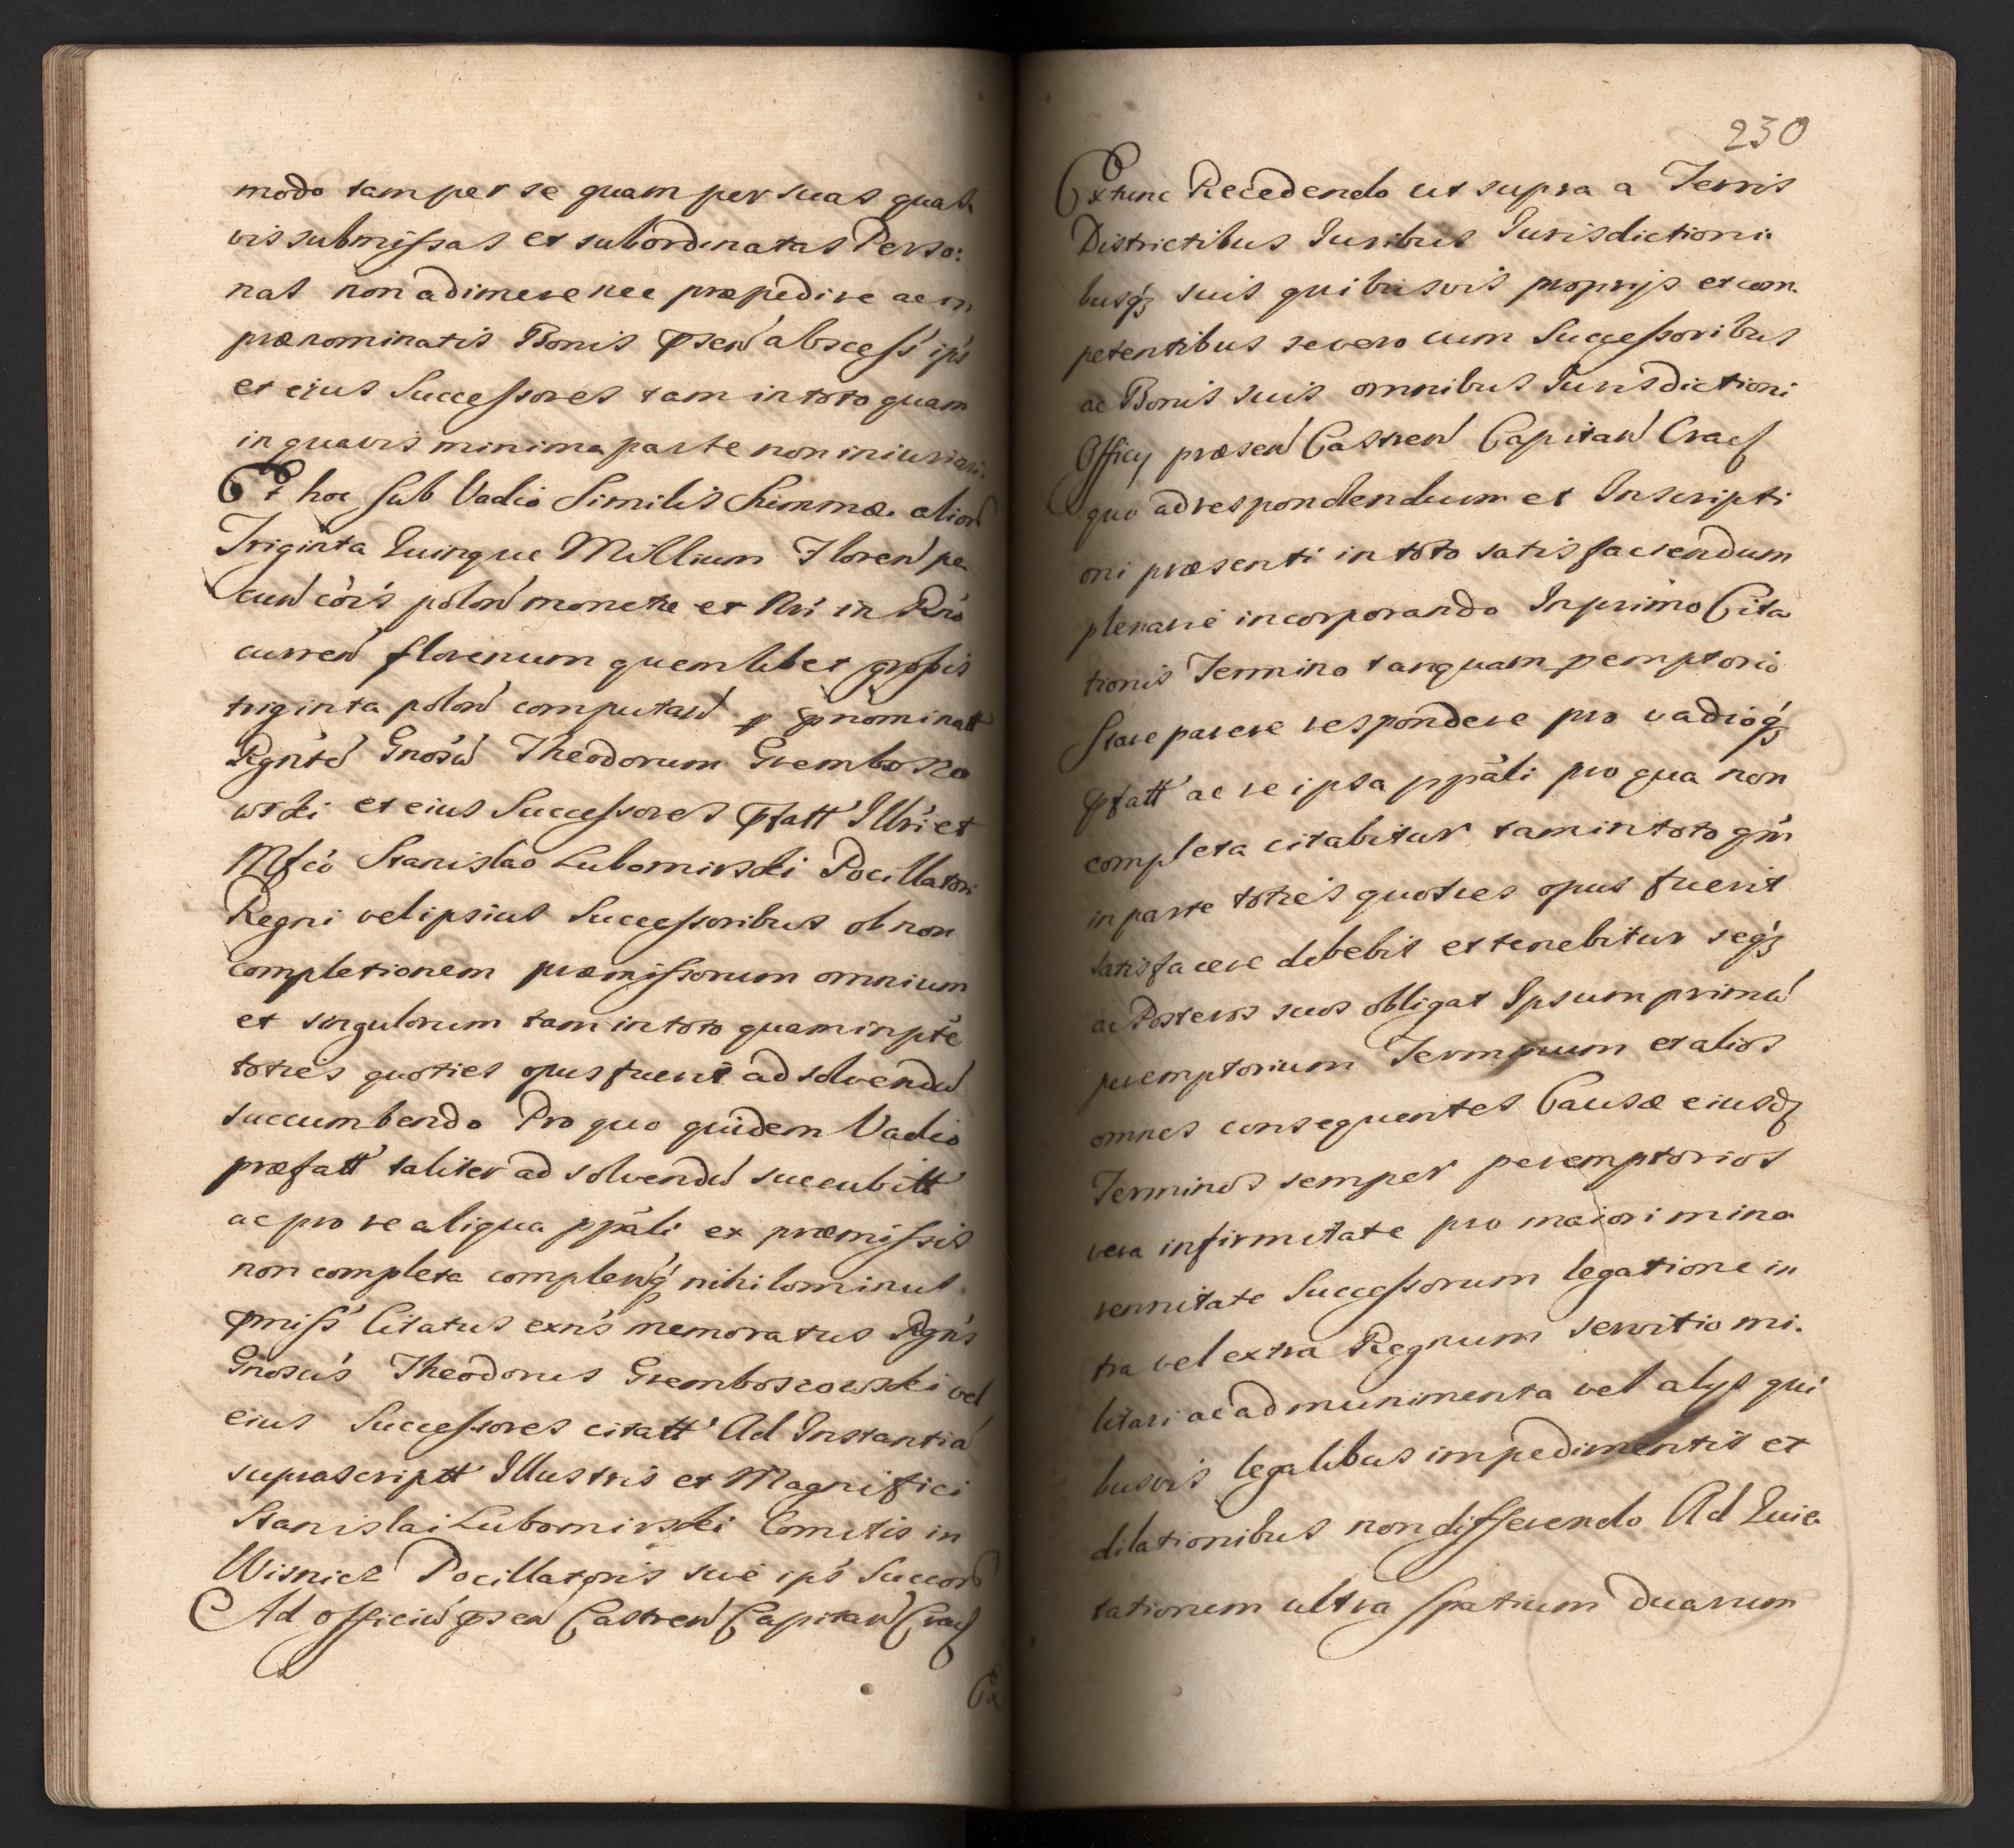 modo tam per se quam per suas quas
vis submissas et subordinatas Perso:
nas non adimere nec præpedire ac in
prænominatis Bonis psen abscess ips
et eius Successores tam in toto quam
in quavis minima parte non iniuriari.
Et hoc sub Vadio Similis Summæ alion
Triginta Quinque Millium Floren pe
cun cois polon monetæ et Nri in Rno
curren florenum quemlibet grossis
triginta polon computan p pnominatt
Rgnte Gnosu Theodorum Grembosco
wski et eius Successores pfatt Illri et
Mfco Stanislao Lubomirski Pocillatori
Regni vel ipsius Successoribus ob non
completionem præmissorum omnium
et singulorum tam in toto quam in pte
toties quoties opus fuerit ad solvendu
succumbendo Pro quo quidem Vadio
præfatt taliter ad solvendu succubitt
ac pro re aliqua ppali ex præmissis
non completa complenq nihilominus
pmiss Citatus exns memoratus Rgns
Gnosus Theodorus Gremboscowski vel
eius Successores citatt Ad Instantia
suprascriptt Illustris et Magnifici
Stanislai Lubomirski Comitis in
Wisnicz Pocillatoris sive ips Succor
Ad officiu psen Castren Capitan Crac
Ex
230
Extunc Recedendo ut supra a Terris
Districtibus Iuribus Iurisdictioni
busq suis quibusvis proprijs et com
petentibus se vero cum Successoribus
ac Bonis suis omnibus Iurisdictioni
Officij præsen Castren Capitan Crac
quo ad respondendum et Inscripti
oni præsenti in toto satisfaciendum
plenarie incorporando In primo Cita
tionis Termino tanquam pemptorio
Stare parere respondere pro vadioq
pfatt ac re ipsa ppali pro qua non
completa citabitur tam in toto qm
in parte toties quoties opus fuerit
satisfacere debebit et tenebitur seq
ac Posteros suos obligat Ipsum primu
peremptorium Terminum et alios
omnes consequentes Causæ eiusd
Terminos semper peremptorios
vera infirmitate pro maiori mino
rennitate Successorum legatione in
tra vel extra Regnum servitio mi.
litari ac ad munimenta vel alys qui
busvis legalibus impedimentis et
dilationibus non differendo Ad Quie
tationem ultra spatium duarum